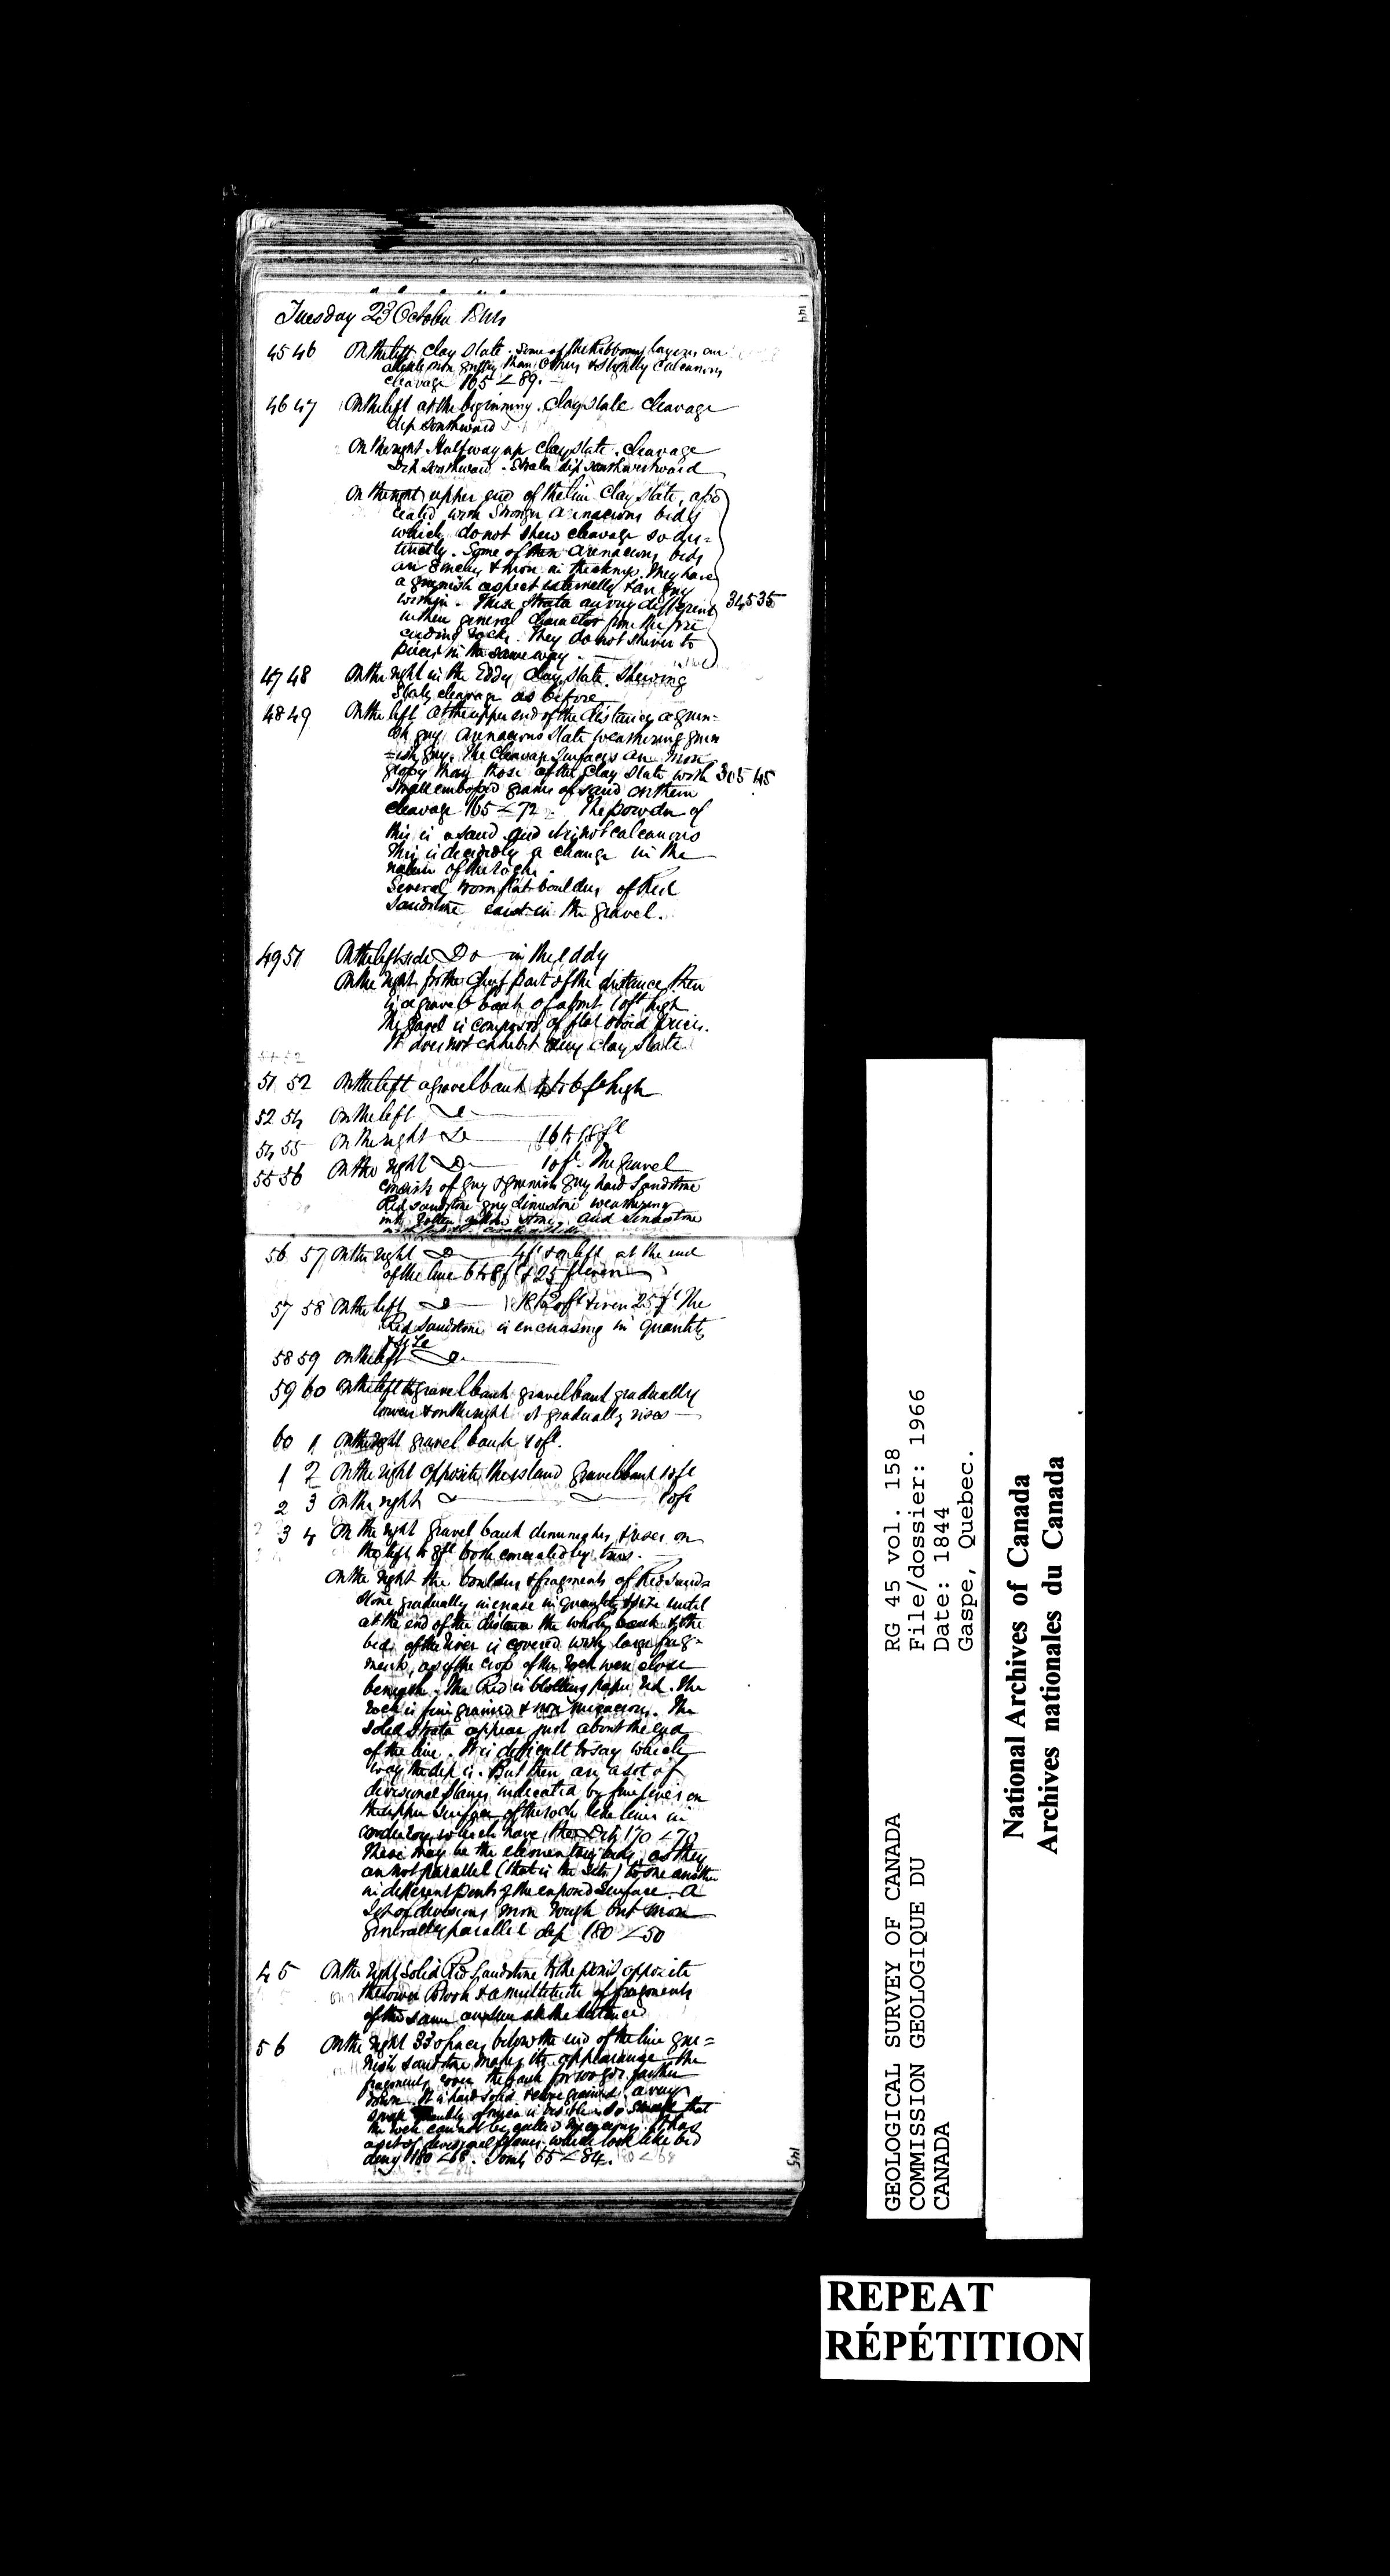 144
Tuesday 23 October 1844
45 46 On the left clay slate. Some of the Ribbony layers are
more gritty than others & slightly calcareous
cleavage 165 < 89.
46 47 On the left at the beginning. Clay slate cleavage
dip Southward
On the right Half way up clay slate. cleavage
Dip Southward. Strata dip southwestward
On the right upper end of the line Clay slate, asso
ciated with stronger arenaceous beds
which do not shew cleavage so dis=
tinctly. Some of these arenaceous beds
are 8 inches & more in thickness. They have
a greenish aspect externally & are grey
within. These strata are very different 34535
in their general character from the pre
ceeding rocks. They do not shiver to
pieces in the same way.
47 48 On the right in the Eddy clay slate. Shewing
slaty cleavage as before
48 49 On the left at the upper end of the distance a green=
ish grey arenaceous slate weathering green
=ish grey. The cleavage surfaces are more
glossy than those of the clay slate with 305 45
small embossed grains of sand on them
cleavage 165 < 72. The powder of
this is a sand and it is not calcareous
This is decidedly a change in the
nature of the rocks.
Several worn flat boulders of Red
Sandstone exist in the gravel.
49 51 On the left side Do in the eddy
On the right for the chief part of the distance there
is a gravel bank of about 10 ft high
The gravel is composed of flat ovoid pieces.
It does not exhibit any clay slate
51 52 On the left a gravel bank 4 to 6 ft high
52 54 On the left Do
54 55 On the right Do 16 to 18 ft
55 56 On the right Do 10 ft. The gravel
consists of grey & greenish grey hard Sandstone
Red sandstone grey Limestone weathering
into rotten yellow stone, and Limestone
56 57 On the right Do 4 ft & on left at the end
of the line 6 to 8 ft & 25 ft even
57 58 On the left Do 18 to 20 ft & even 25 ft The
Red Sandstone is encreasing in quantity
& size
58 59 On the left Do
59 60 On the left gravel bank gravel bank gradually
lowers & on the right it gradually rises
60 1 On the right gravel bank 10 ft.
1 2 On the right opposite the island gravel bank 10 ft
2 3 On the right Do 10 ft
3 4 On the right gravel bank diminishes & rises on
the left to 8 ft both concealed by trees.
On the right the boulders & fragments of Red Sand=
stone gradually increase in quantity & size until
at the end of the distance the whole bank & the
bed of the river is covered with large frag=
ments, as if the crop of the rock were close
beneath. The Red is blotting paper red. The
rock is fine grained & non micaceous. The
solid strata appear just about the end
of the line. It is difficult to say which
way the dip is. But there are a set of
divisional planes indicated by fine lines on
the upper surface of the rock like lines in
which have the Dip 170 < 70
These may be the elementary beds, as they
are not parallel (that is the sets) to one another
in different parts of the exposed surface. A
Set of divisions more rough but more
generally parallel dip 180 < 50
4 5 On the right solid Red Sandstone to the point opposite
the lower Brook & a multitude of fragments
of the same are seen all the distance
5 6 On the right 330 paces below the end of the line gree=
nish sandstone makes its appearance the
fragments cover the bank for 100 yds farther
down. It is hard solid & fine grained. a very
small quantity of mica is visible so small that
the rock cannot be called micaceous. It has
a set of divisional planes which look like bed
ding 180 < 68. Joints 55 < 84.
145
GEOLOGICAL SURVEY OF CANADA
COMMISSION GEOLOGIQUE DU
CANADA
RG 45 vol. 158
File/dossier: 1966
Date: 1844
Gaspe, Quebec.
National Archives of Canada
Archives nationales du Canada
REPEAT
RÉPÉTITION